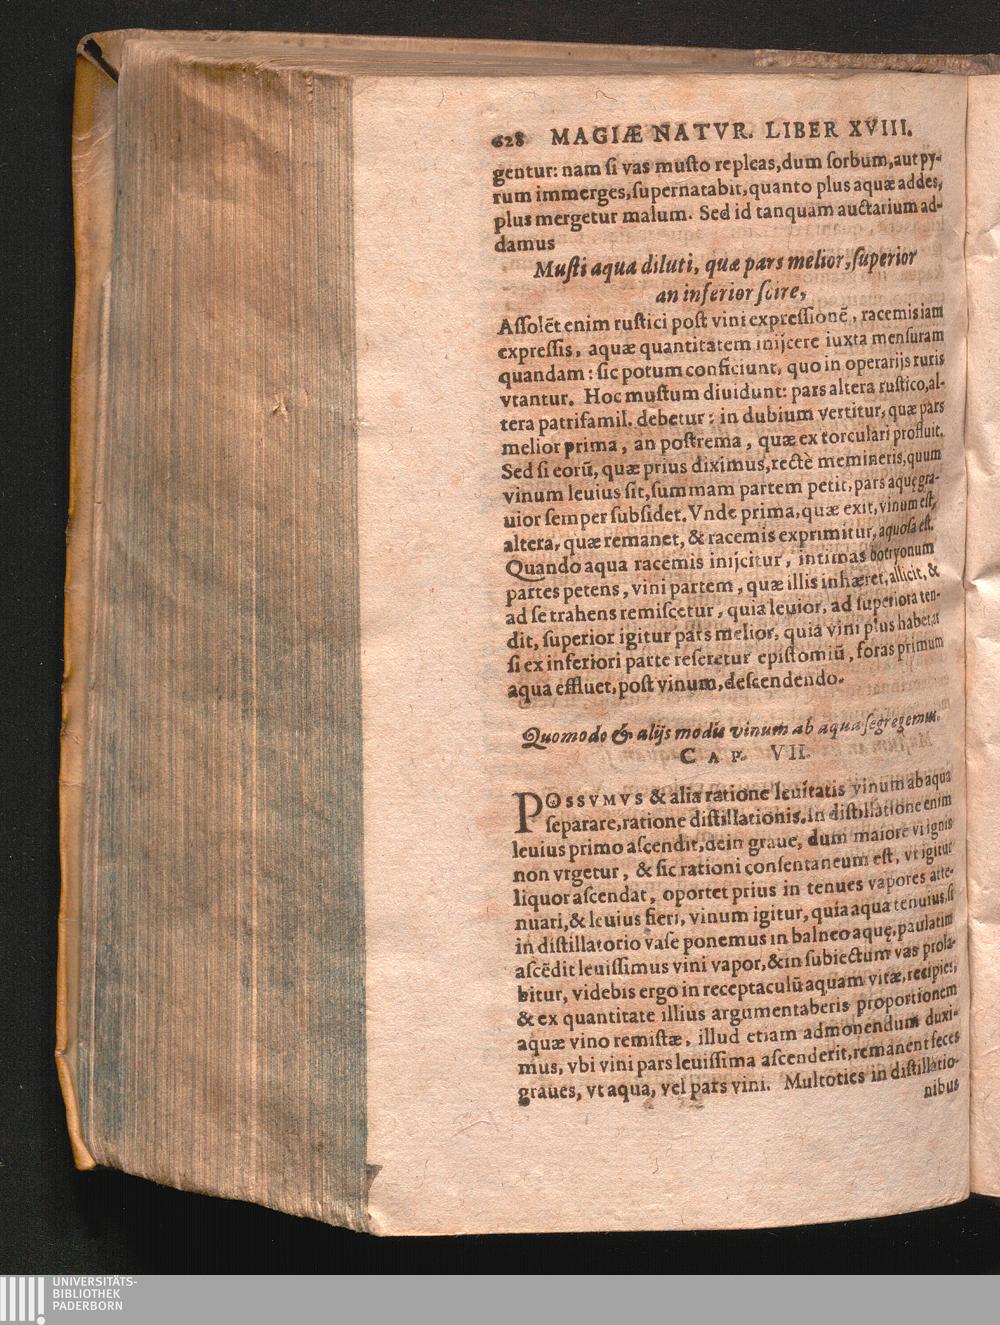 628 MAGIÆ NATVR. LIBER XVIII.
gentur: nam ſi vas muſto repleas, dum ſorbum, aut py-
rum immerges, ſupernatabit, quanto plus aquæ addes,
plus mergetur malum. Sed id tanquam auctarium ad-
damus
Muſti aqua diluti, quæ pars melior, ſuperior
an inferior ſcire,
Aſſolēt enim ruſtici poſt vini expreſſionē, racemis iam
expreſſis, aquæ quantitatem inijcere iuxta menſuram
quandam: ſic potum conficiunt, quo in operarijs ruris
vtantur. Hoc muſtum diuidunt: pars altera ruſtico, al-
tera patrifamil. debetur: in dubium vertitur, quæ pars
melior prima, an poſtrema, quæ ex torculari profluit.
Sed ſi eorū, quæ prius diximus, rectè memineris, quum
vinum leuius ſit, ſummam partem petit, pars aquę gra-
uior ſemper ſubſidet. Vnde prima, quæ exit, vinum eſt,
altera, quæ remanet, & racemis exprimitur, aquoſa eſt.
Quando aqua racemis inijcitur, intimas botryonum
partes petens, vini partem, quæ illis inhæret, allicit, &
ad ſe trahens remiſcetur, quia leuior, ad ſuperiora ten-
dit, ſuperior igitur pars melior, quia vini plus habet: at
ſi ex inferiori parte referetur epiſtomiū, foras primum
aqua effluet, poſt vinum, deſcendendo.
Quomodo & alijs modis vinum ab aqua ſegregemus.
CAP. VII.
POSSVMVS & alia ratione leuitatis vinum ab aqua
ſeparare, ratione diſtillationis. in diſtillatione enim
leuius primo aſcendit, dein graue, dum maiore vi ignis
non vrgetur, & ſic rationi conſentaneum eſt, vt igitur
liquor aſcendat, oportet prius in tenues vapores atte-
nuari, & leuius fieri, vinum igitur, quia aqua tenuius, ſi
in diſtillatorio vaſe ponemus in balneo aquę, paulatim
aſcēdit leuiſſimus vini vapor, & in ſubiectum vas prola-
bitur, videbis ergo in receptaculū aquam vitæ, recipies,
& ex quantitate illius argumentaberis proportionem
aquæ vino remiſtæ, illud etiam admonendum duxi-
mus, vbi vini pars leuiſſima aſcenderit, remanent feces
graues, vt aqua, vel pars vini. Multoties in diſtillatio-
nibus
UNIVERSITÄTS-
BIBLIOTHEK
PADERBORN